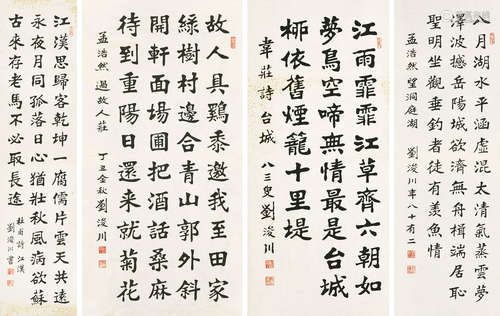 八月湖水平涵虛混太清氣蒸雲夢
澤波撼岳陽城欲濟無舟楫端居恥
聖明坐觀垂釣者徒有羨魚情
孟浩然望洞庭湖 劉浚川年八十有二
江雨霏霏江草齊六朝如
夢鳥空啼無情最是台城
柳依舊煙籠十里堤
韋莊詩台城 八三叟劉浚川
故人具鷄黍邀我至田家
綠樹村邊合青山郭外斜
開軒面場圃把酒話桑麻
待到重陽日還來就菊花
孟浩然過故人莊 丁丑金秋劉浚川
江漢思歸客乾坤一腐儒片雲天共遠
永夜月同孤落日心猶壯秋風病欲蘇
古來存老馬不必取長途
杜甫詩江漢
劉浚川書